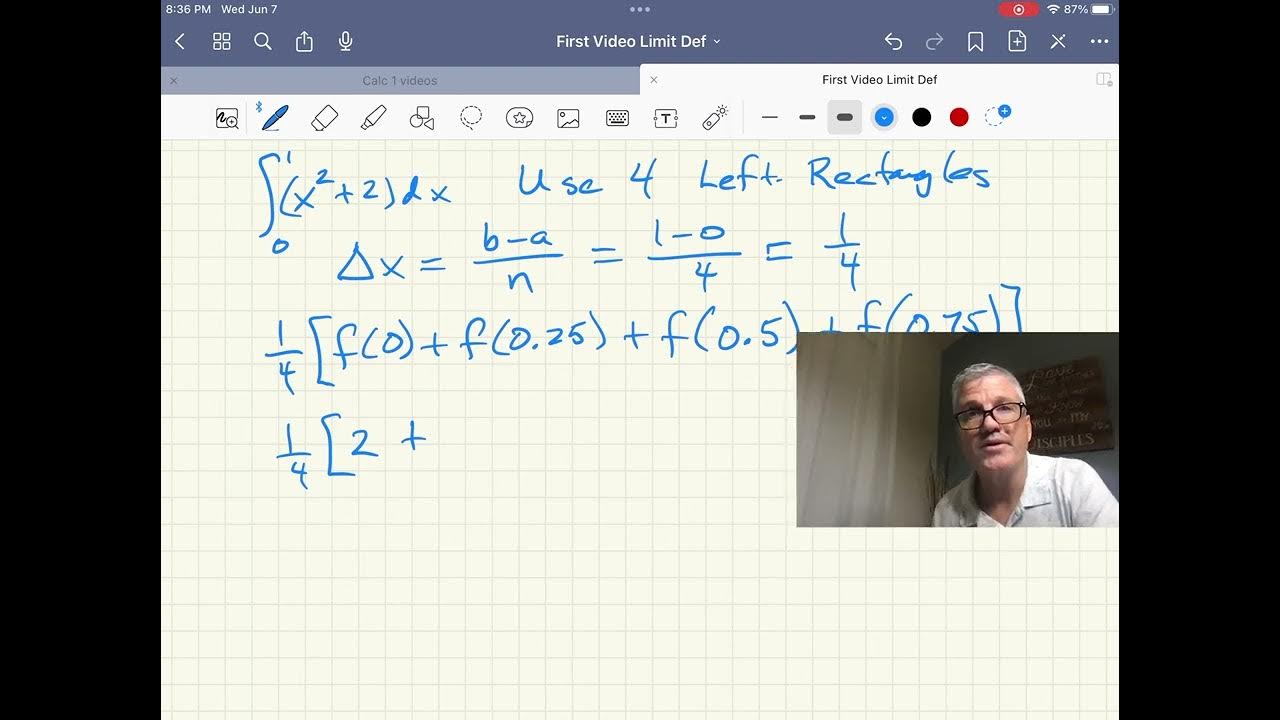 8:36 PM Wed Jun 7 87%
First Video Limit Def
Calc 1 videos
First Video Limit Def
∫₀¹ (x² + 2) dx Use 4 Left Rectangles
Δx = (b-a)/n = (1-0)/4 = 1/4
1/4 [f(0) + f(0.25) + f(0.5) + f(0.75)]
1/4 [2 +
Love
Know
you
my
DISCIPLES